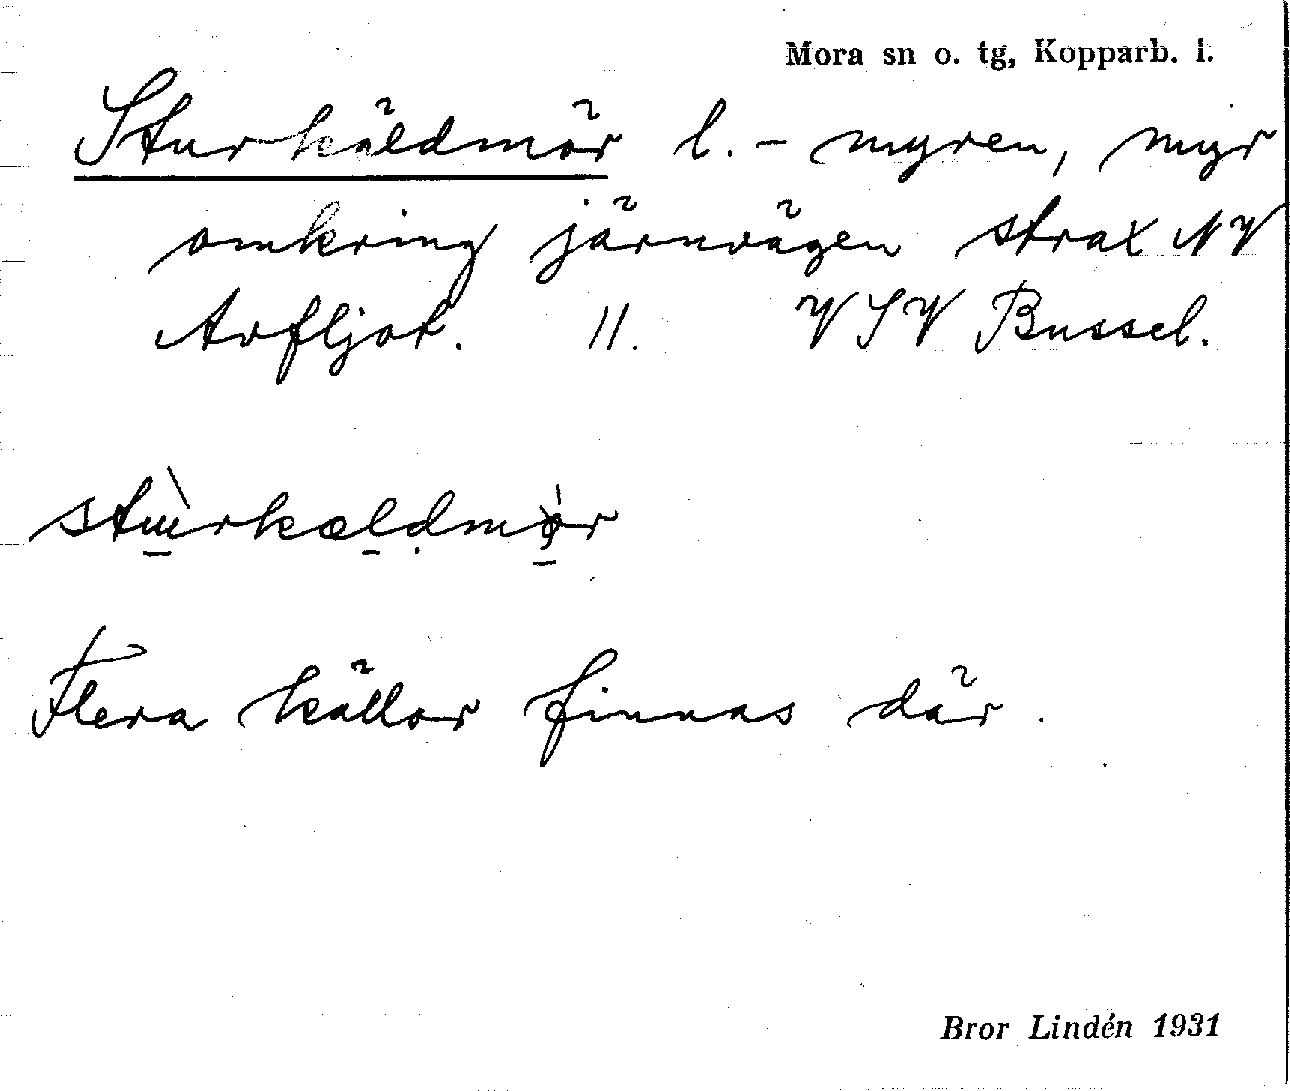 Mora sn o. tg, Kopparb. l.
Sturkäldmör l. - myren, myr
omkring järnvägen strax NV
Avfljot. 11. VSV Bussel.
stùrkældmør
Flera källor finnas där.
Bror Lindén 1931